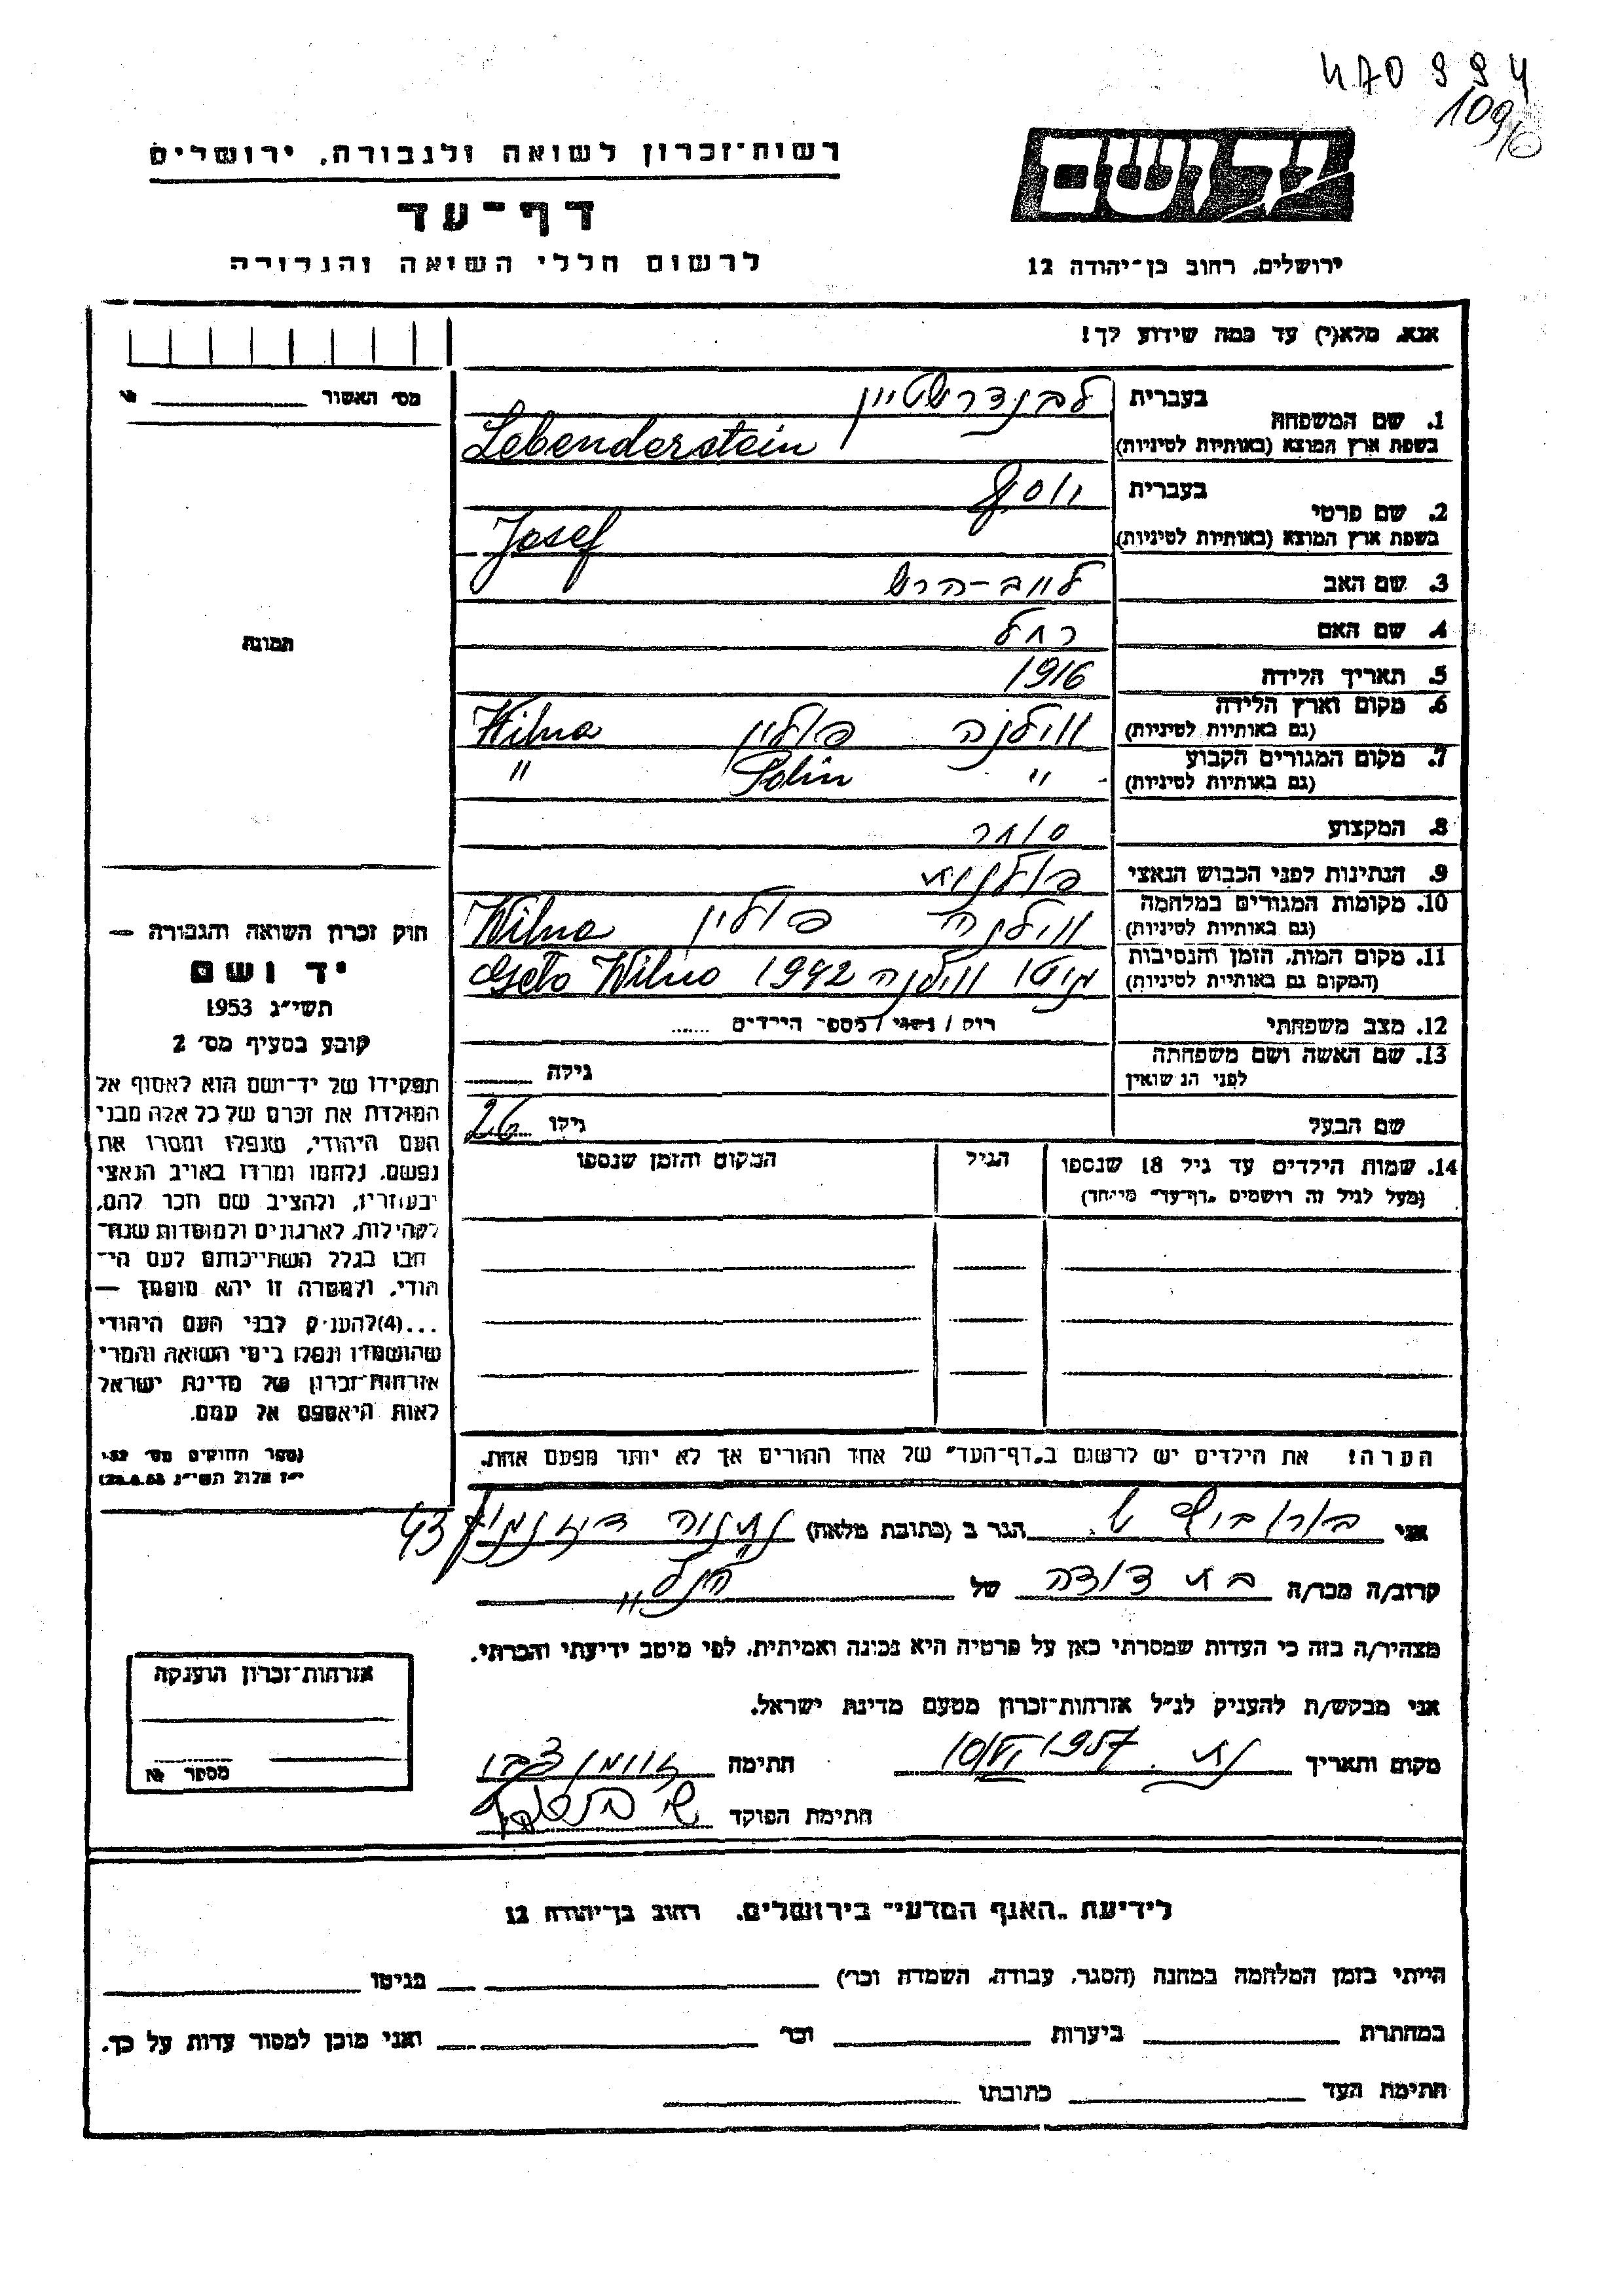 470994
109/
רשות־זכרון לשואה ולגבורה, ירושלים
יד ושם
דף־עד
לרשום חללי השואה והגבורה
ירושלים, רחוב בן־יהודה 12
אנא, מלא(י) עד כמה שידוע לך!
מס' האשור № 
1. שם המשפחה בעברית לבנדרשטיין
בשפת ארץ המוצא (באותיות לטיניות) Lebenderstein
2. שם פרטי בעברית יוסף
בשפת ארץ המוצא (באותיות לטיניות) Josef
3. שם האב לייב-הרש
4. שם האם רחל
תמונה
5. תאריך הלידה 1916
6. מקום וארץ הלידה (גם באותיות לטיניות) ווילנה פולין Wilna
7. מקום המגורים הקבוע (גם באותיות לטיניות) " Polin "
8. המקצוע סוחר
9. הנתינות לפני הכבוש הנאצי פולנית
10. מקומות המגורים במלחמה (גם באותיות לטיניות) ווילנה פולין Wilna
11. מקום המות, הזמן והנסיבות (המקום גם באותיות לטיניות) גיטו ווילנה 1942 Geto Wilno
12. מצב משפחתי רוק / נשוי / מספר הילדים
13. שם האשה ושם משפחתה לפני הנשואין גילה
שם הבעל גילו 26
14. שמות הילדים עד גיל 18 שנספו הגיל המקום והזמן שנספו
(מעל לגיל זה רושמים "דף־עד" מיוחד)
חוק זכרון השואה והגבורה —
יד ושם
תשי"ג 1953
קובע בסעיף מס' 2
תפקידו של יד־ושם הוא לאסוף אל
המולדת את זכרם של כל אלה מבני
העם היהודי, שנפלו ומסרו את
נפשם, נלחמו ומרדו באויב הנאצי
ובעוזריו, ולהציב שם וזכר להם,
לקהילות, לארגונים ולמוסדות שנח־
רבו בגלל השתייכותם לעם הי־
הודי, ולמטרה זו יהא מוסמך —
...(4) להעניק לבני העם היהודי
שהושמדו ונפלו בימי השואה והמרי
אזרחות־זכרון של מדינת ישראל
לאות היאספם אל עמם.
(ספר החוקים מס' 132
י"ז אלול תשי"ג 28.8.53)
הערה! את הילדים יש לרשום ב"דף־העד" של אחד ההורים אך לא יותר מפעם אחת.
אני הגר ב (כתובת מלאה) נתניה דיזנגוף 43
קרוב/ה מכר/ה בת דודה של הנ"ל
מצהיר/ה בזה כי העדות שמסרתי כאן על פרטיה היא נכונה ואמיתית, לפי מיטב ידיעתי והכרתי.
אני מבקש/ת להעניק לנ"ל אזרחות־זכרון מטעם מדינת ישראל.
מקום ותאריך נת. 10/VI 1957 חתימה
חתימת הפוקד
אזרחות־זכרון הוענקה
מספר №
לידיעת "האגף המדעי" בירושלים, רחוב בן־יהודה 12
הייתי בזמן המלחמה במחנה (הסגר, עבודה, השמדה וכו') בגיטו
במחתרת ביערות וכו' ואני מוכן למסור עדות על כך.
חתימת העד כתובתו